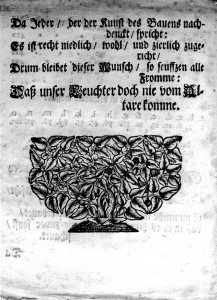 Da Jeder / der der Kunst des Bauens nach-
denckt / spricht:
Es ist recht niedlich / wohl / und zierlich zuge-
richt /
Drum bleibet dieser Wunsch / so seuffzen alle
Fromme:
Daß unser Leuchter doch nie vom Al-
tare komme.